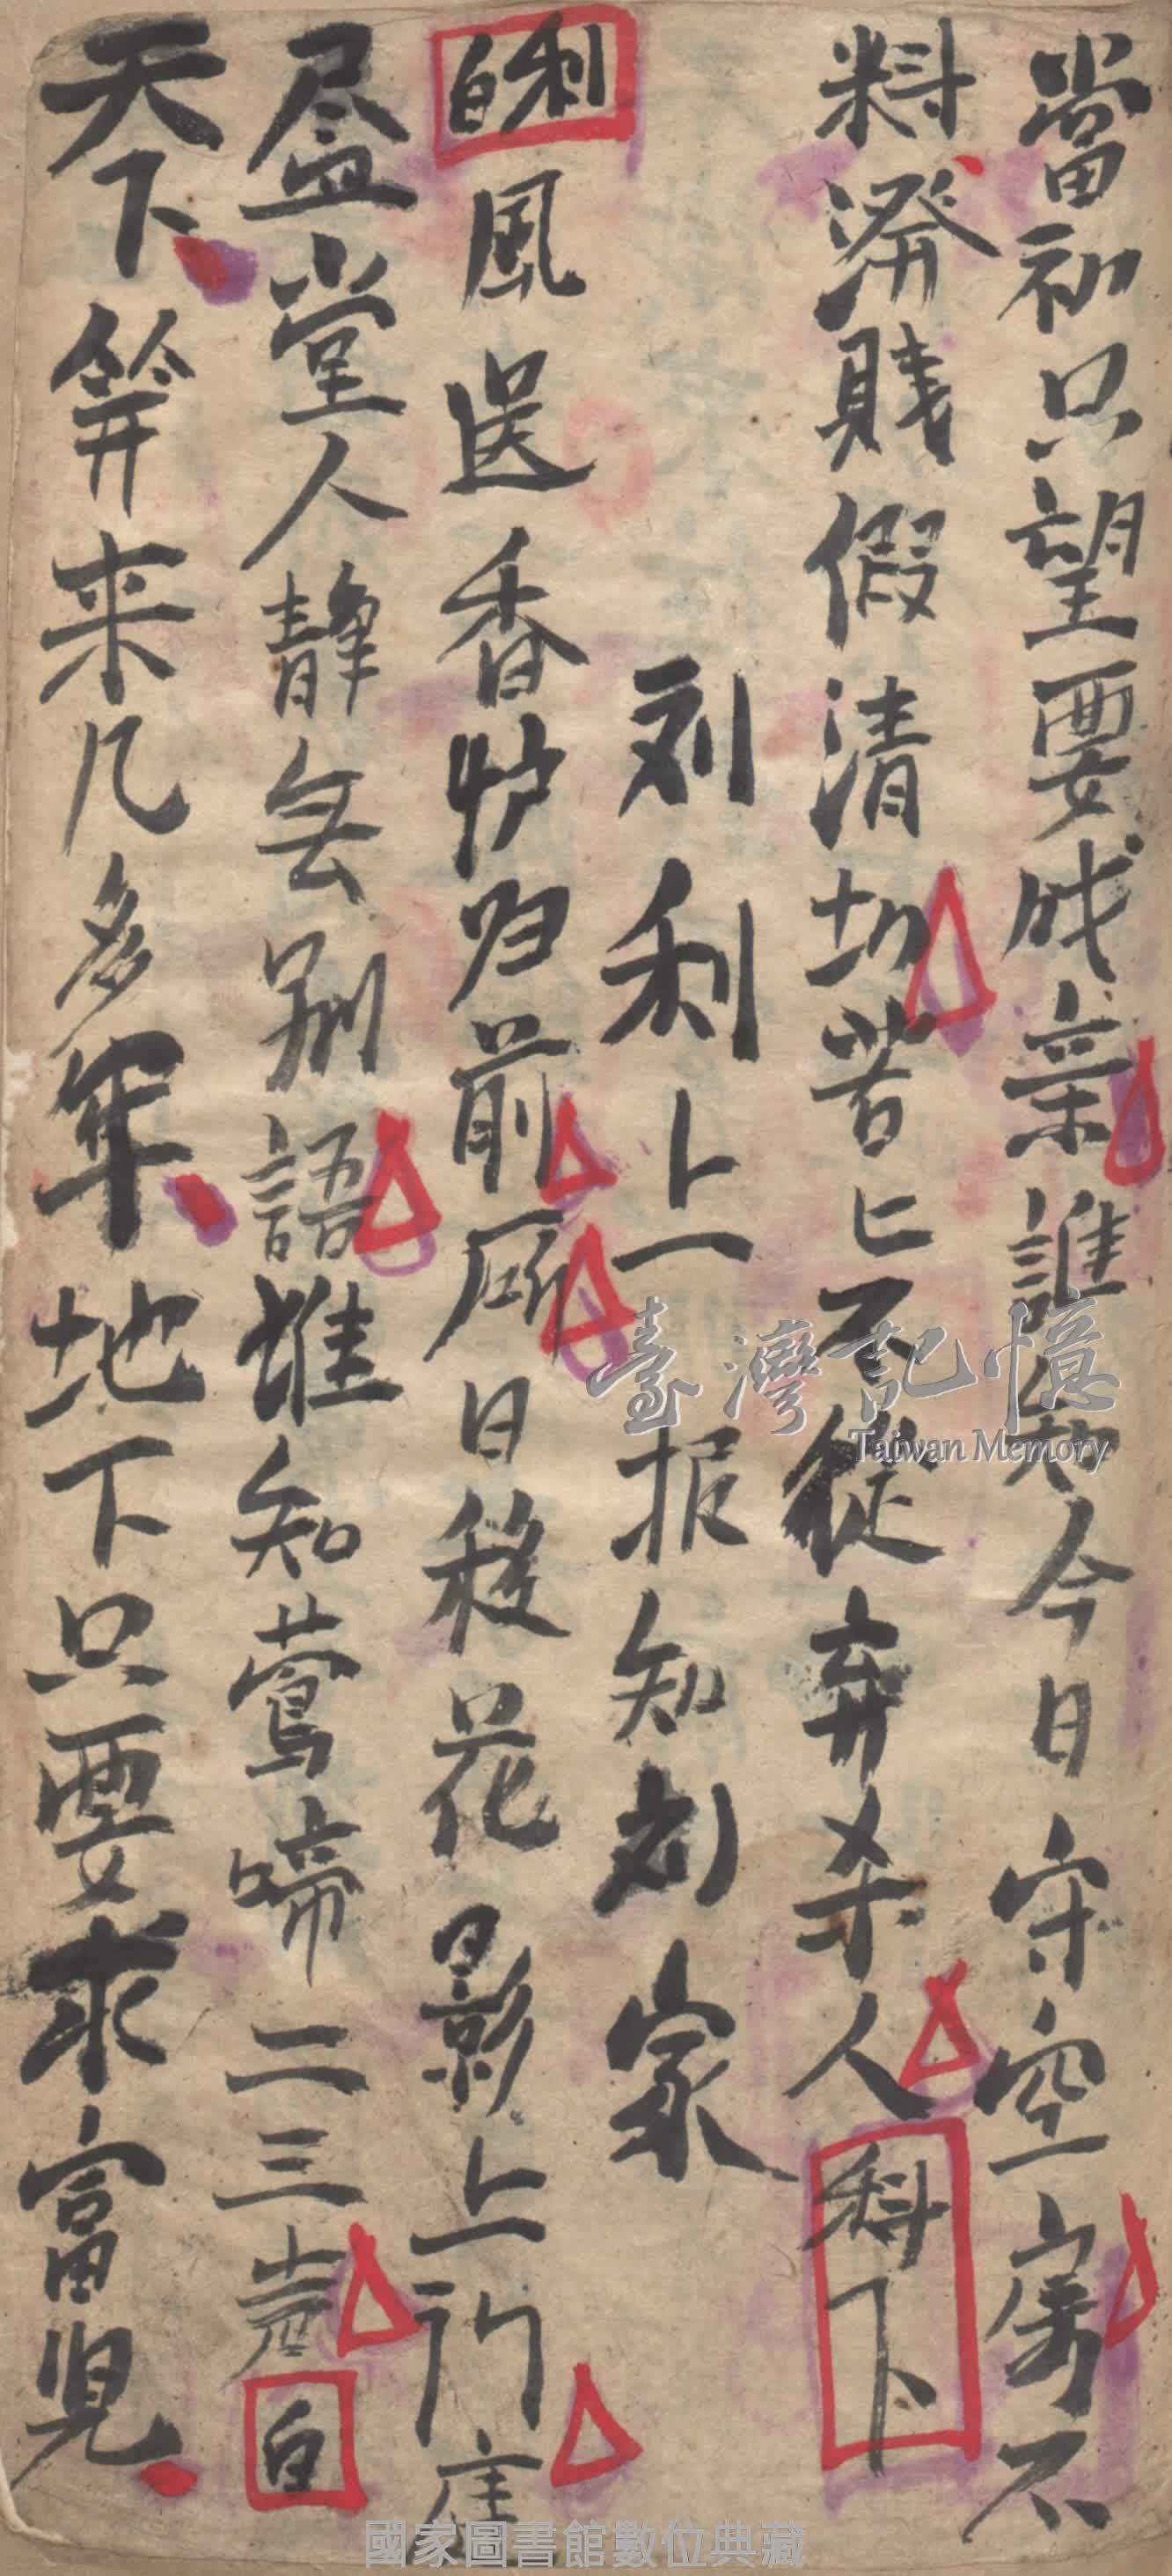 當初只望要成業誰知今日守空房不
料潑賤假清切苦匕不從弃杀人科下
刘利上报知刘家
利白風送香炉归前所日移花影上门庭
尽堂人静無别語惟知莺啼二三声白
天下算来几多年地下只要求富児
臺灣記憶
Taiwan Memory
國家圖書館數位典藏